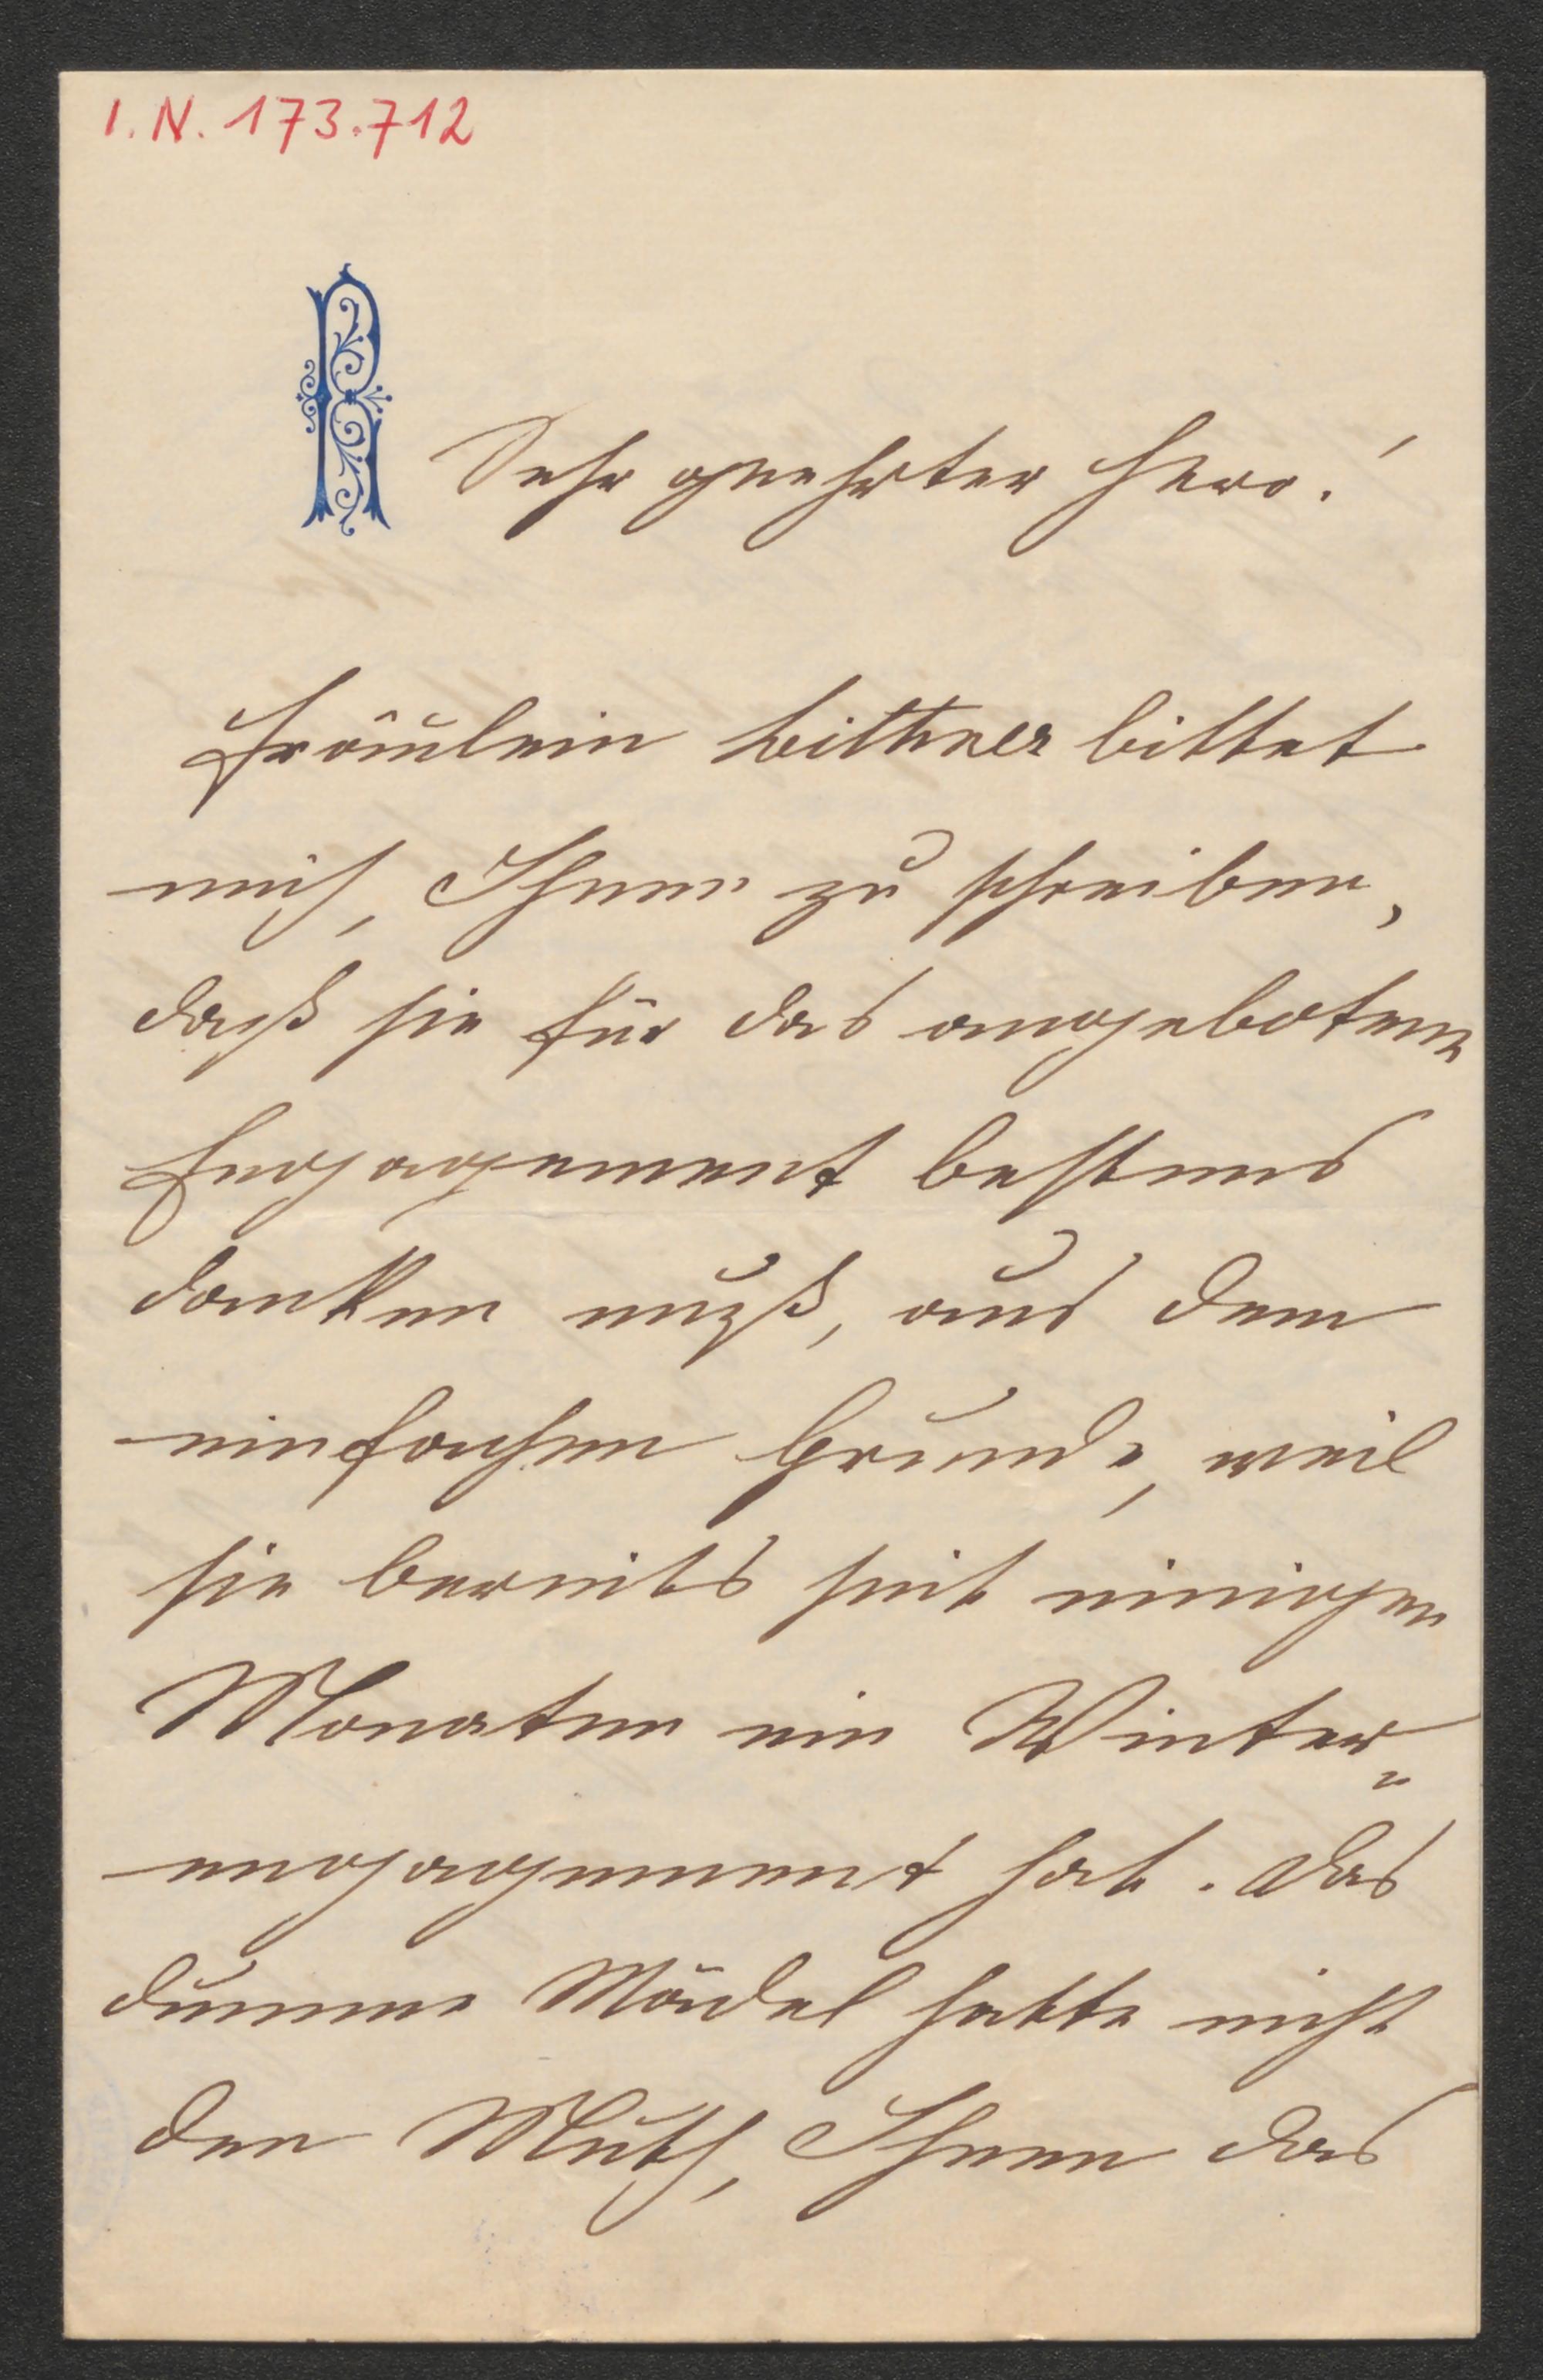 I. N. 173.712
R
Sehr geehrter Herr!
Fräulein Bittner bittet
mich, Ihnen zu schreiben,
daß sie für das angebotene
Engagement bestens
danken muß, aus dem
einfachen Grunde, weil
sie bereits seit einigen
Monaten ein Winter-
engagement hat. Das
dumme Mädel hatte nicht
den Muth, Ihnen das